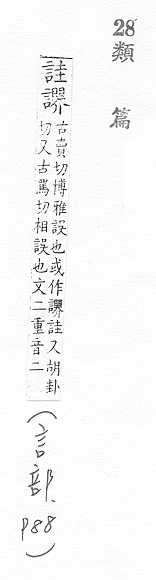 28
類篇
詿
古賣切博雅誤也或作詿又胡卦
切又古罵切相誤也文二重音二
(言部、P88)